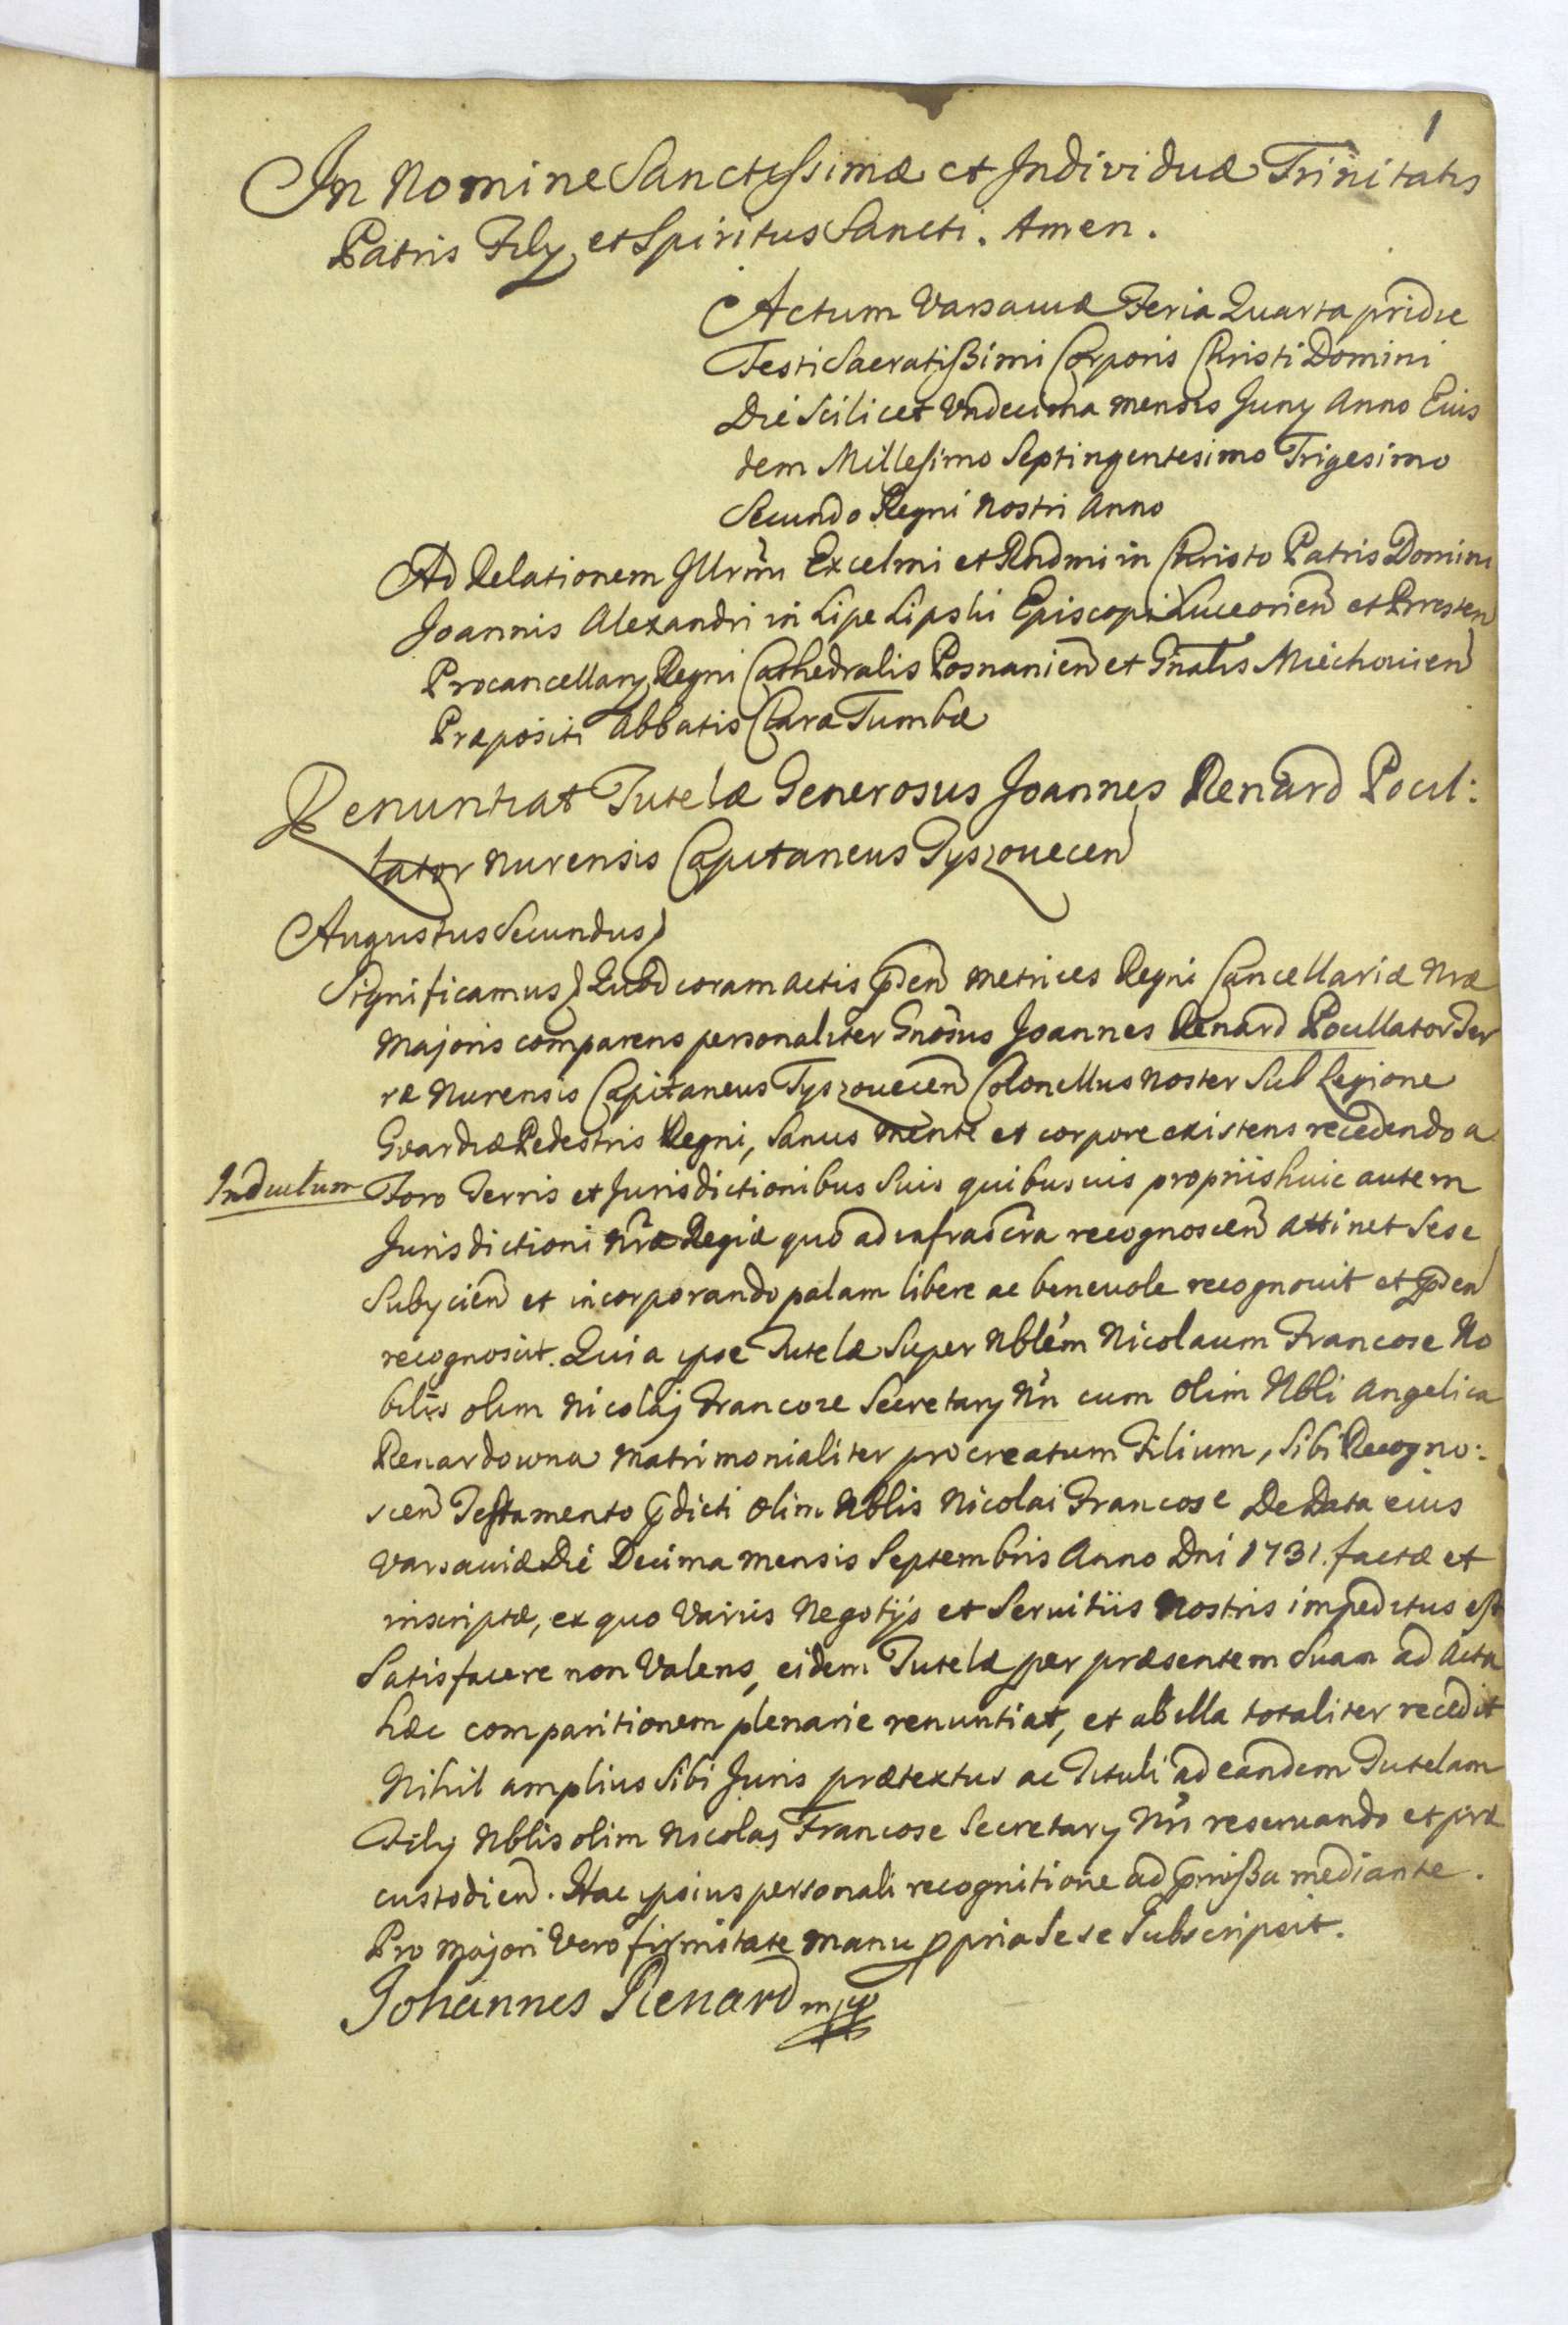 1
In Nomine Sanctissimæ et Individuæ Trinitatis
Patris Filÿ et Spiritus Sancti. Amen.
Actum Varsaviæ Feria Quarta pridie
Festi Sacratissimi Corporis Christi Domini
Die Scilicet Undecima mensis Junÿ Anno Eius
dem Millesimo Septingentesimo Trigesimo
Secundo Regni Nostri Anno
Ad Relationem Illrmi Excelmi et Rndmi in Christo Patris Domini
Joannis Alexandri in Lipe Lipski Episcopi Luceorien et Brresten
Procancellarÿ Regni Cathedralis Posnanien et Gnalis Miechovien
Præpositi Abbatis Claræ Tumbæ
Renuntiat Tutelæ Generosus Joannes Renard Pocil:
lator Nurensis Capitaneus Tyszouecen
Augustus Secundus
Significamus Quod coram actis pden Metrices Regni Cancellariæ Nræ
Majoris comparens personaliter Gnosus Joannes Renard Pocillator Ter
ræ Nurensis Capitaneus Tyszouecen Colonellus noster Sub Legione
Gvardiæ Pedestris Regni, Sanus mente et corpore existens recedendo a
Inductum
Foro Terris et Jurisdictionibus Suis quibusuis propriis huic autem
Jurisdictioni Nræ Regiæ quo ad infrascra recognoscen attinet Sese
Subÿcien et incorporando palam libere ac beneuole recognouit et pden
recognoscit. Quia ipse Tutelæ Super Nblem Nicolaum Francose No
bilis olim Nicolaj Francoze Secretarÿ Nri cum olim Nbli Angelica
Renardowna Matrimonialiter procreatum Filium, Sibi Recogno:
scen Testamento pdicti olim Nblis Nicolai Francose De Data eius
Varsaviæ Die Decima mensis Septembris Anno Dni 1731. factæ et
inscriptæ, ex quo Variis Negotijs et Seruitiis Nostris impeditus est
Satisfacere non Valens, eidem Tutelæ per præsentem Suam ad Acta
hæc comparitionem plenarie renuntiat, et ab illa totaliter recedit
Nihil amplius Sibi Juris prætextus ac Tituli ad eandem Tutelam
Filij Nblis olim Nicolaj Francose Secretarÿ Nri reseruando et præ
custodien. Hac ipsius personali recognitione ad pmissa mediante.
Pro majori Vero firmitate manu ppria Sese Subscripsit.
Johannes Renard mpp